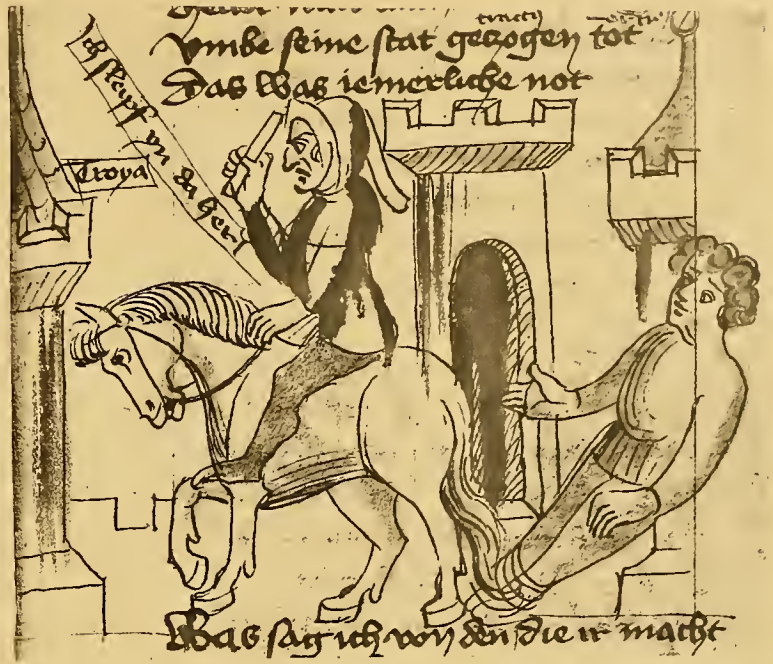 vmbe seine stat gezogen tot
tracty
Das was iemerliche not
Ich sleipf yn da her
Troya
Was sag ich von den die ir macht